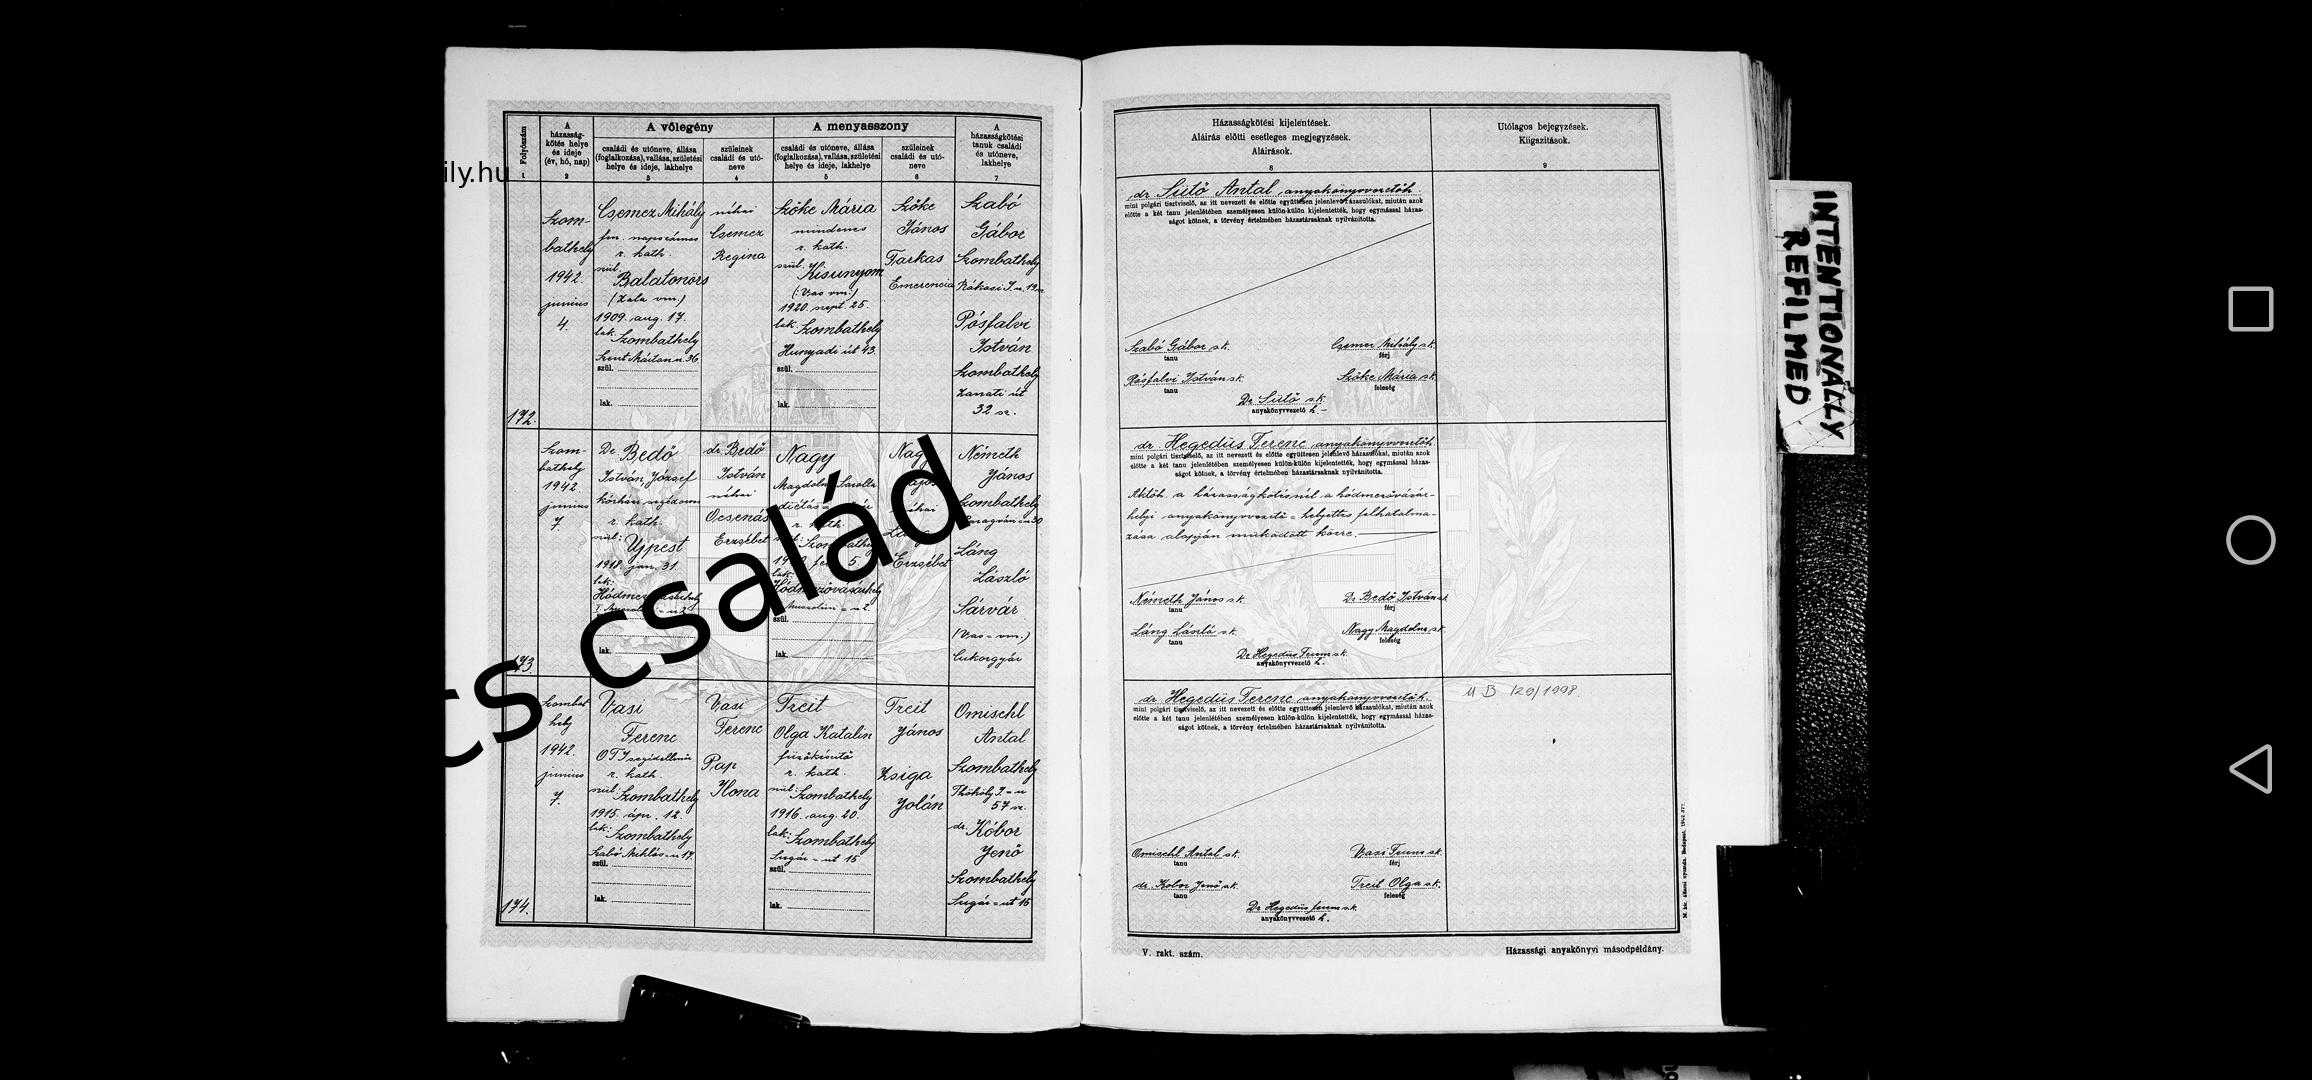 ily.hu
cs család
Folyószám
1
A
házasság-
kötés helye
és ideje
(év, hó, nap)
2
A vőlegény
családi és utóneve, állása
(foglalkozása), vallása, születési
helye és ideje, lakhelye
3
szüleinek
családi és utó-
neve
4
A menyasszony
családi és utóneve, állása
(foglalkozása), vallása, születési
helye és ideje, lakhelye
5
szüleinek
családi és utó-
neve
6
A
házasságkötési
tanuk családi
és utóneve,
lakhelye
7
172.
Szom-
bathely
1942.
junius
4.
Csemez Mihály
fm. napszámos
r. kath.
szül:
Balatonőrs
(Zala vm.)
1909. aug. 17.
lak: Szombathely
Szent Márton u. 36
szül.
lak.
néhai
Csemez
Regina
Szőke Mária
mindenes
r. kath.
szül. Kisunyom
(Vas vm.)
1920. szept. 25.
lak: Szombathely
Hunyadi út 43.
szül.
lak.
Szőke
János
Farkas
Emerencia
Szabó
Gábor
Szombathely
Rákosi J. u. 19
Pósfalvi
István
Szombathely
Zanati út
32 sz.
173.
Szom-
bathely
1942
junius
7.
Dr Bedő
István, József
kórházi segédorvos
r. kath.
szül:
Ujpest
1918. jan. 31.
lak:
szül.
lak.
dr. Bedő
István
néhai
Ocsenás
Erzsébet
Nagy
Magdolna Sarolta
r. kath.
Hódmezővásárhely
szül.
lak.
Nagy
Lajos
néhai
Láng
Erzsébet
Németh
János
Szombathely
Láng
László
Sárvár
(Vas-vm.)
Cukorgyár
174.
Szombat
hely
1942.
junius
7.
Vasi
Ferenc
OTI segédellenőr
r. kath.
szül: Szombathely
1915. ápr. 12.
lak: Szombathely
Szabó Miklós-u 17.
szül.
lak.
Vasi
Ferenc
Pap
Ilona
Treit
Olga Katalin
füzőkészitő
r. kath.
szül: Szombathely
1916. aug. 20.
lak: Szombathely
Sugár-ut 15
szül.
lak.
Treit
János
Zsiga
Jolán
Omischl
Antal
Szombathely
Thököly I.-u
57 sz.
dr. Kóbor
Jenő
Szombathely
Sugár-ut 15
Házasságkötési kijelentések.
Aláirás előtti esetleges megjegyzések.
Aláirások.
8
Utólagos bejegyzések.
Kiigazitások.
9
dr Sütő Antal anyakönyvvezetőh.
mint polgári tisztviselő, az itt nevezett és előtte együttesen jelenlevő házasulókat, miután azok
előtte a két tanu jelenlétében személyesen külön-külön kijelentették, hogy egymással házas-
ságot kötnek, a törvény értelmében házastársaknak nyilvánította.
Szabó Gábor s.k.
tanu
Csemez Mihály s.k.
férj
Pósfalvi István sk.
tanu
Szőke Mária sk.
feleség
Dr Sütő sk.
anyakönyvvezető h.-
dr. Hegedüs Ferenc anyakönyvvezetőh.
mint polgári tisztviselő, az itt nevezett és előtte együttesen jelenlevő házasulókat, miután azok
előtte a két tanu jelenlétében személyesen külön-külön kijelentették, hogy egymással házas-
ságot kötnek, a törvény értelmében házastársaknak nyilvánította.
Aktőh. a házasságkötésnél a hódmezővásár-
helyi anyakönyvvezető-helyettes felhatalma-
zása alapján müködött közre.
Németh János s.k.
tanu
Dr Bedő István sk.
férj
Láng László s.k.
tanu
Nagy Magdolna sk.
feleség
Dr Hegedüs Ferenc sk.
anyakönyvvezető h.
dr. Hegedüs Ferenc anyakönyvvezetőh.
mint polgári tisztviselő, az itt nevezett és előtte együttesen jelenlevő házasulókat, miután azok
előtte a két tanu jelenlétében személyesen külön-külön kijelentették, hogy egymással házas-
ságot kötnek, a törvény értelmében házastársaknak nyilvánította.
Omischl Antal sk.
tanu
Vasi Ferenc sk.
férj
dr. Kóbor Jenő sk.
tanu
Treit Olga sk.
feleség
Dr Hegedüs Ferenc sk.
anyakönyvvezető h.
M B 129/1998.
V. rakt. szám.
Házassági anyakönyvi másodpéldány.
M. kir. állami nyomda. Budapest. 1942
INTENTIONALLY
REFILMED